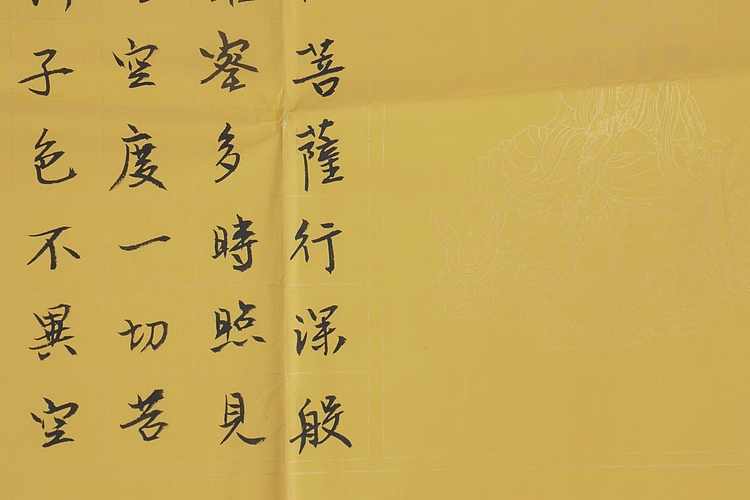 菩薩行深般
蜜多時照見
空度一切苦
子色不異空